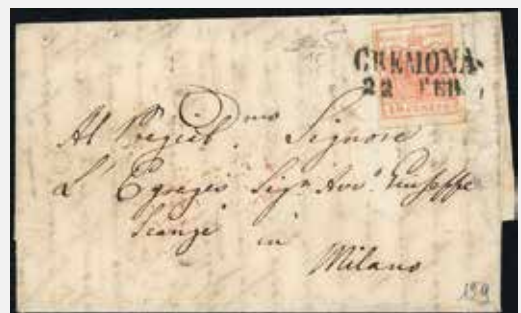 CREMONA
22 FEB.
Al Pregiel.mo Signore
L'Egregio Sig.r Avv.o Giuseppe
in
Milano
139